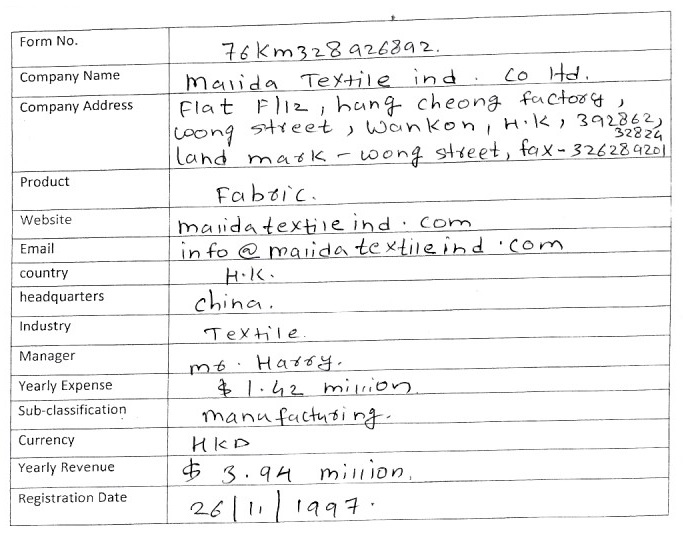 Form No. 76Km328926892.
Company Name Maiida Textile ind. Co ltd.
Company Address Flat F/12, hang cheong factory,
wong street, Wankon, H.K, 392862,
32824
land mark - wong street, fax - 326289201
Product Fabric.
Website maiidatextileind.com
Email info@maiidatextileind.com
country H.K.
headquarters china.
Industry Textile.
Manager mr. Harry.
Yearly Expense $ 1.42 million
Sub-classification manufacturing.
Currency HKD
Yearly Revenue $ 3.94 million.
Registration Date 26/11/1997.